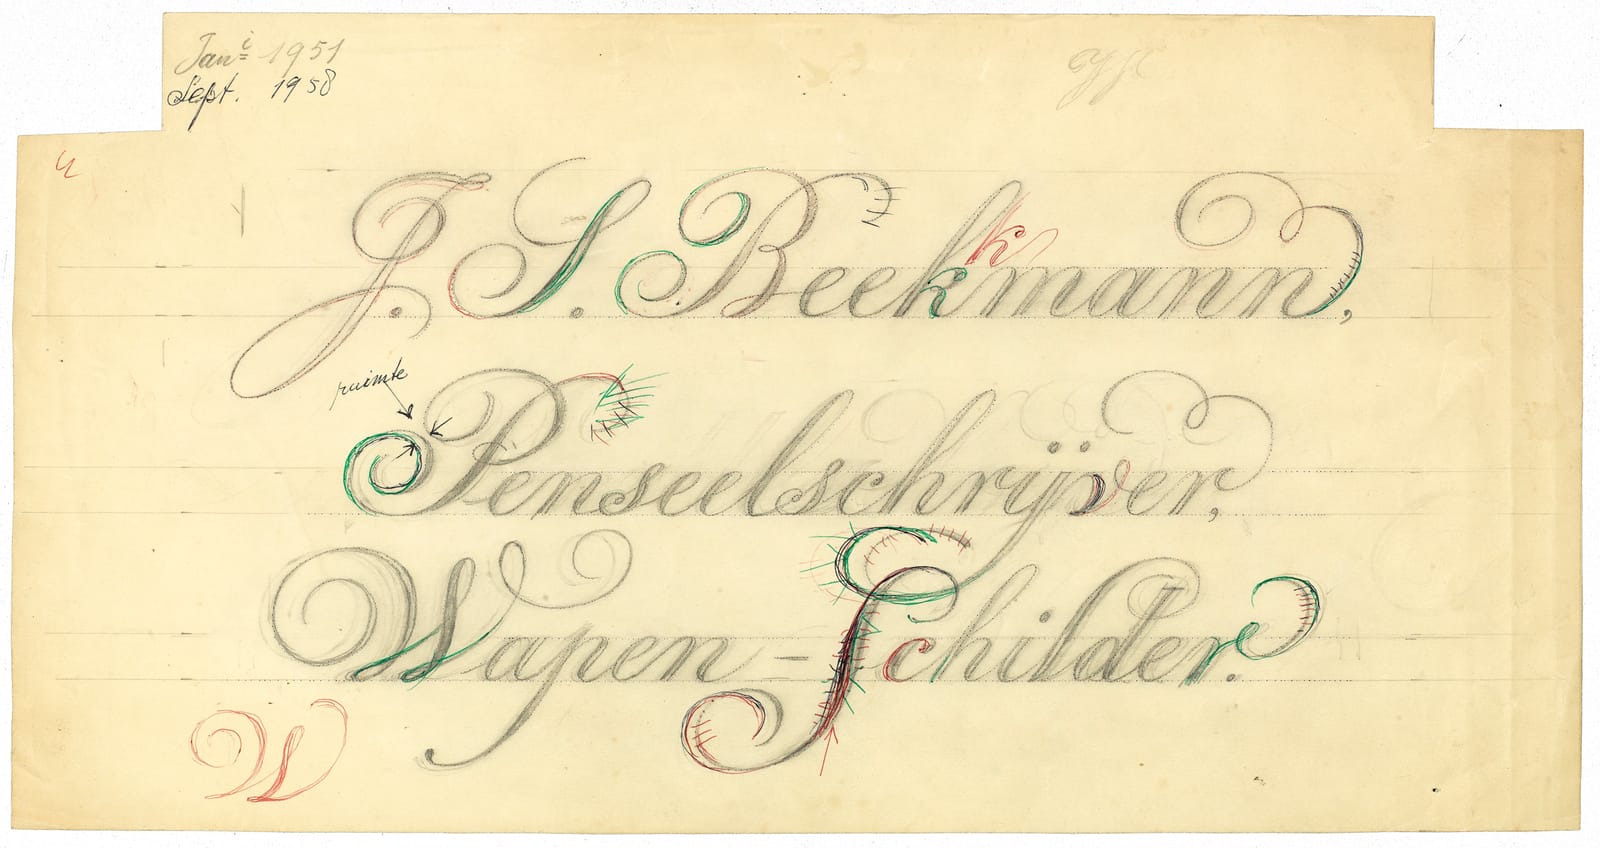 Janⁱ 1951
Sept. 1958
J. S. Beekmann,
k
ruimte
Penseelschrijver,
Wapen - Schilder.
W